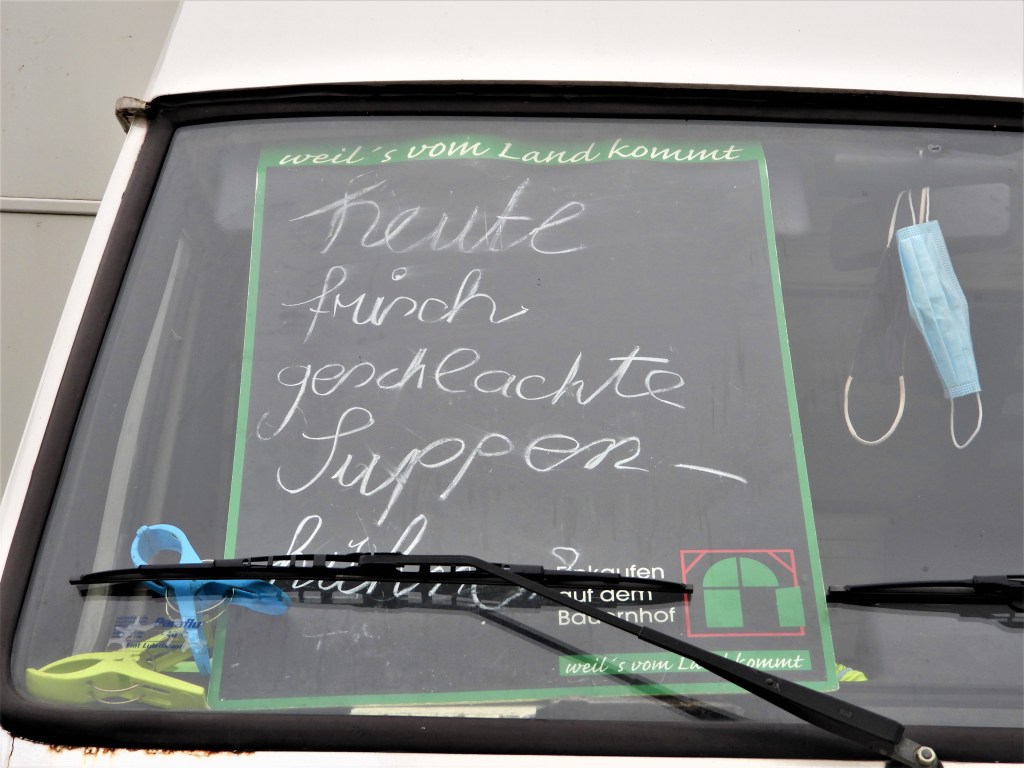 weil´s vom Land kommt
heute
frisch
geschlachte
Suppen-
hühner
Einkaufen
auf dem
Bauernhof
weil´s vom Land kommt